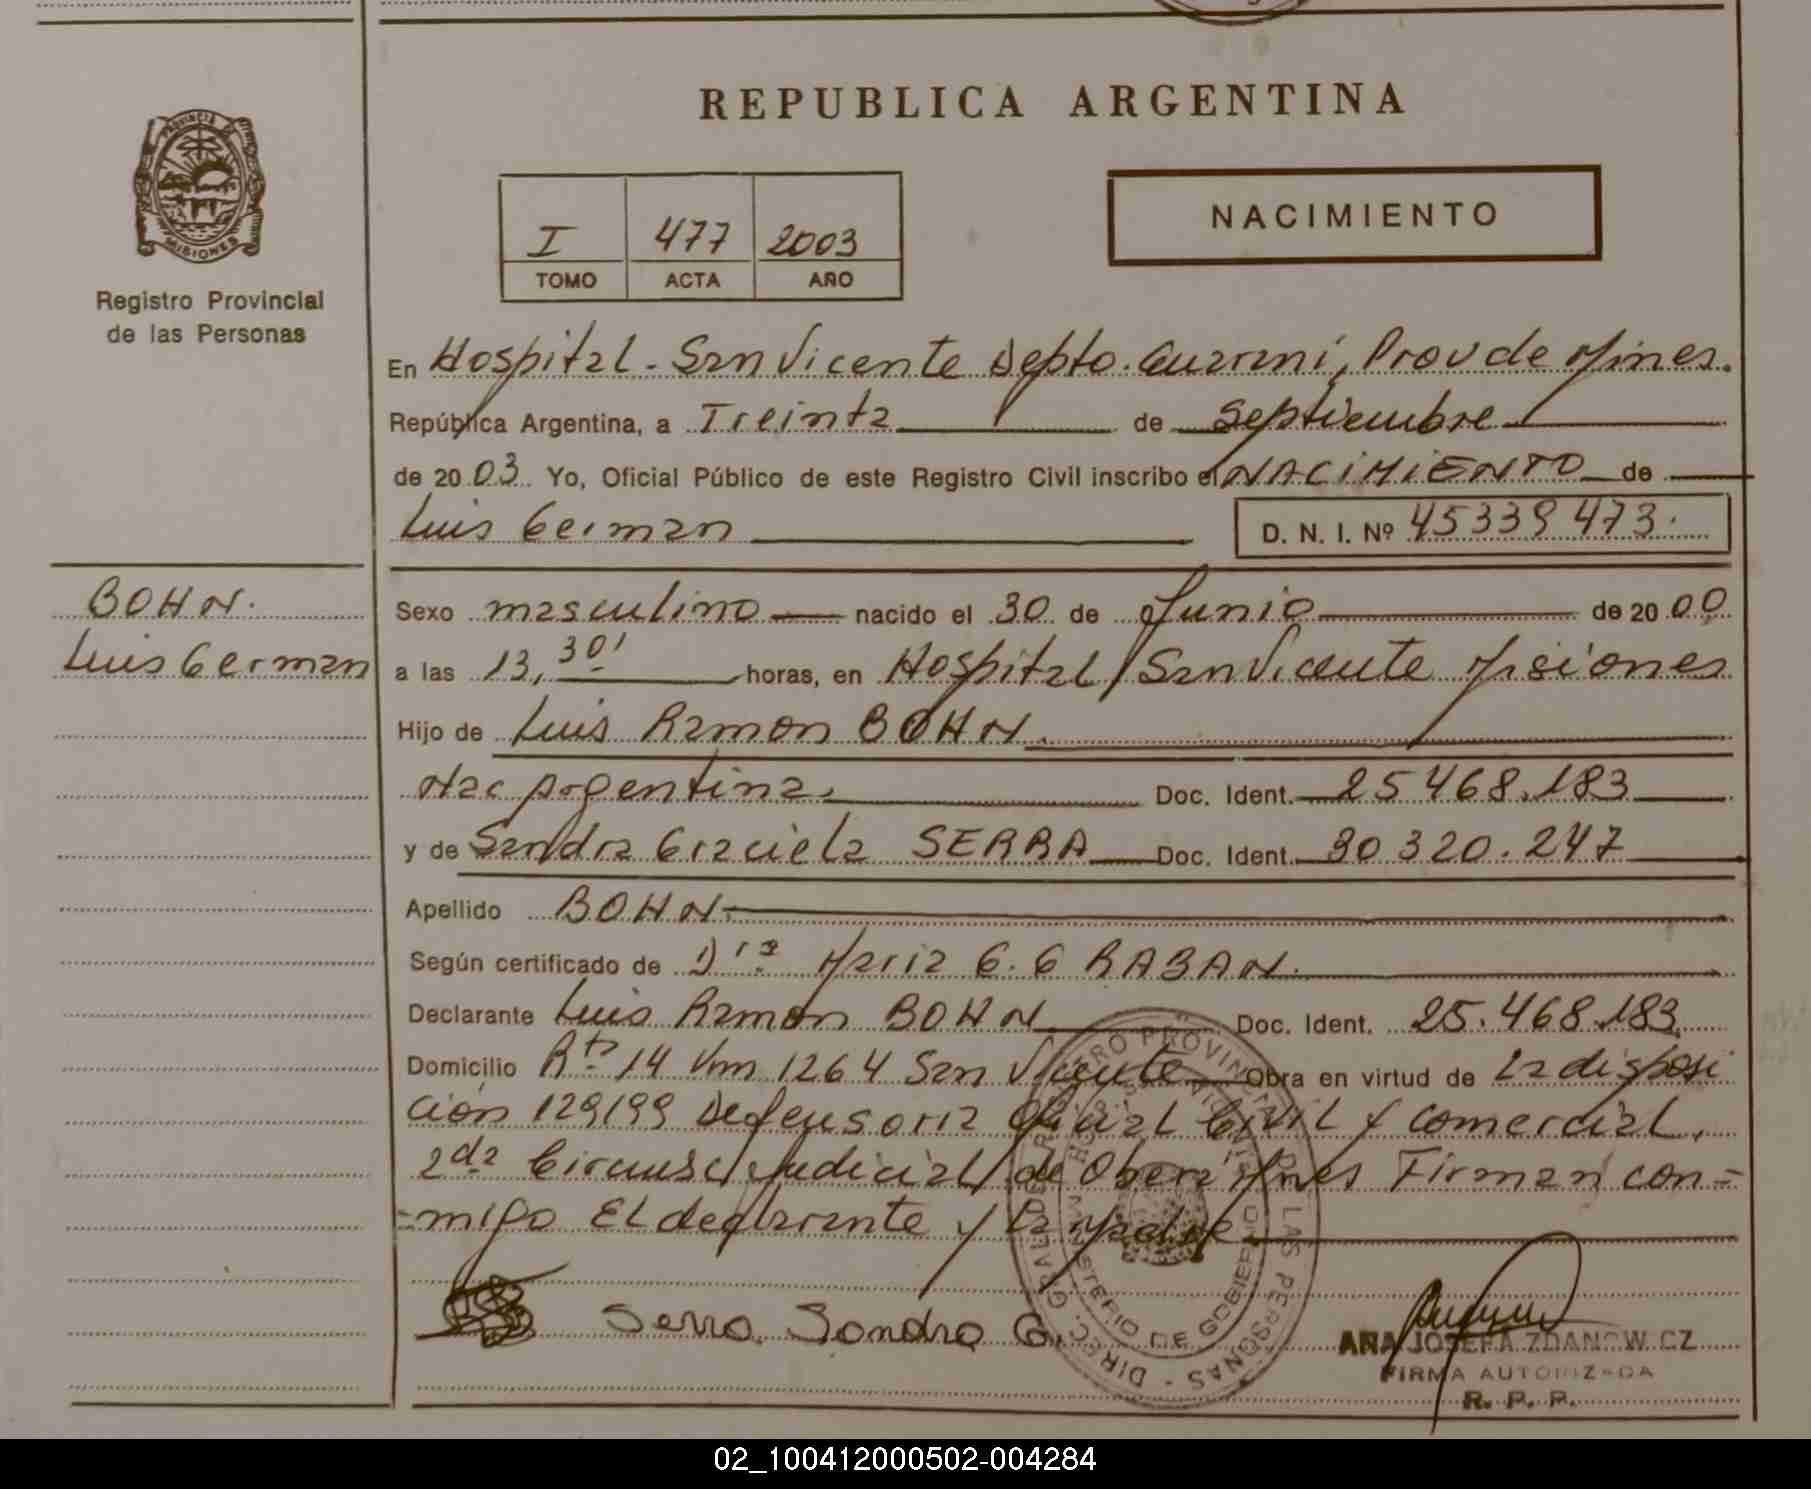 REPUBLICA ARGENTINA
PROVINCIA DE
MISIONES
Registro Provincial
de las Personas
I 477 2003
TOMO ACTA AÑO
NACIMIENTO
En Hospital - San Vicente Depto. Guarani, Prov de Mnes.
República Argentina, a Treinta de Septiembre
de 2003 Yo, Oficial Público de este Registro Civil inscribo el NACIMIENTO de
Luis German D. N. I. Nº 45339473.
BOHN.
Luis German
Sexo masculino nacido el 30 de Junio de 2000
a las 13,30' horas, en Hospital San Vicente Misiones
Hijo de Luis Ramon BOHN.
Nac Argentina. Doc. Ident. 25468.183
y de Sandra Graciela SERRA Doc. Ident. 30320.247
Apellido BOHN
Según certificado de Dra Maria G. G RABAN.
Declarante Luis Ramon BOHN Doc. Ident. 25.468.183
Domicilio Rta 14 Km 1264 San Vicente Obra en virtud de La disposi
ción 129/99 Defensoria Oficial Civil y Comercial,
2da Circunsc Judicial de Obera Mnes Firman con-
-migo El declarante y La Madre
Serra Sandra G.
DIREC. GRAL. DEL REGISTRO PROVINCIAL DE LAS PERSONAS
MINISTERIO DE GOBIERNO
ANA JOSEFA ZDANOWICZ
FIRMA AUTORIZADA
R. P. P.
02_100412000502-004284